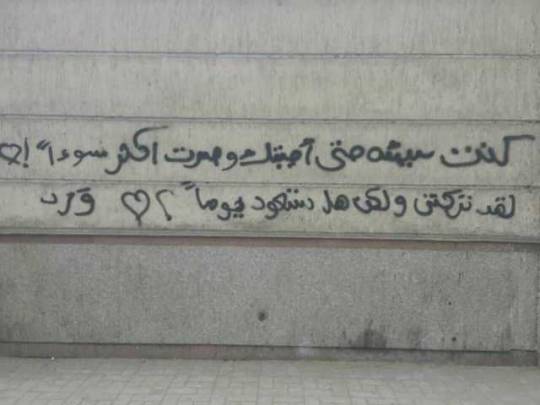 كنت سيئه حتى أحببتك وصرت اكثر سوءاً !♡
لقد تركتني ولكن هل ستعود يوماً ؟ ♡ ورد